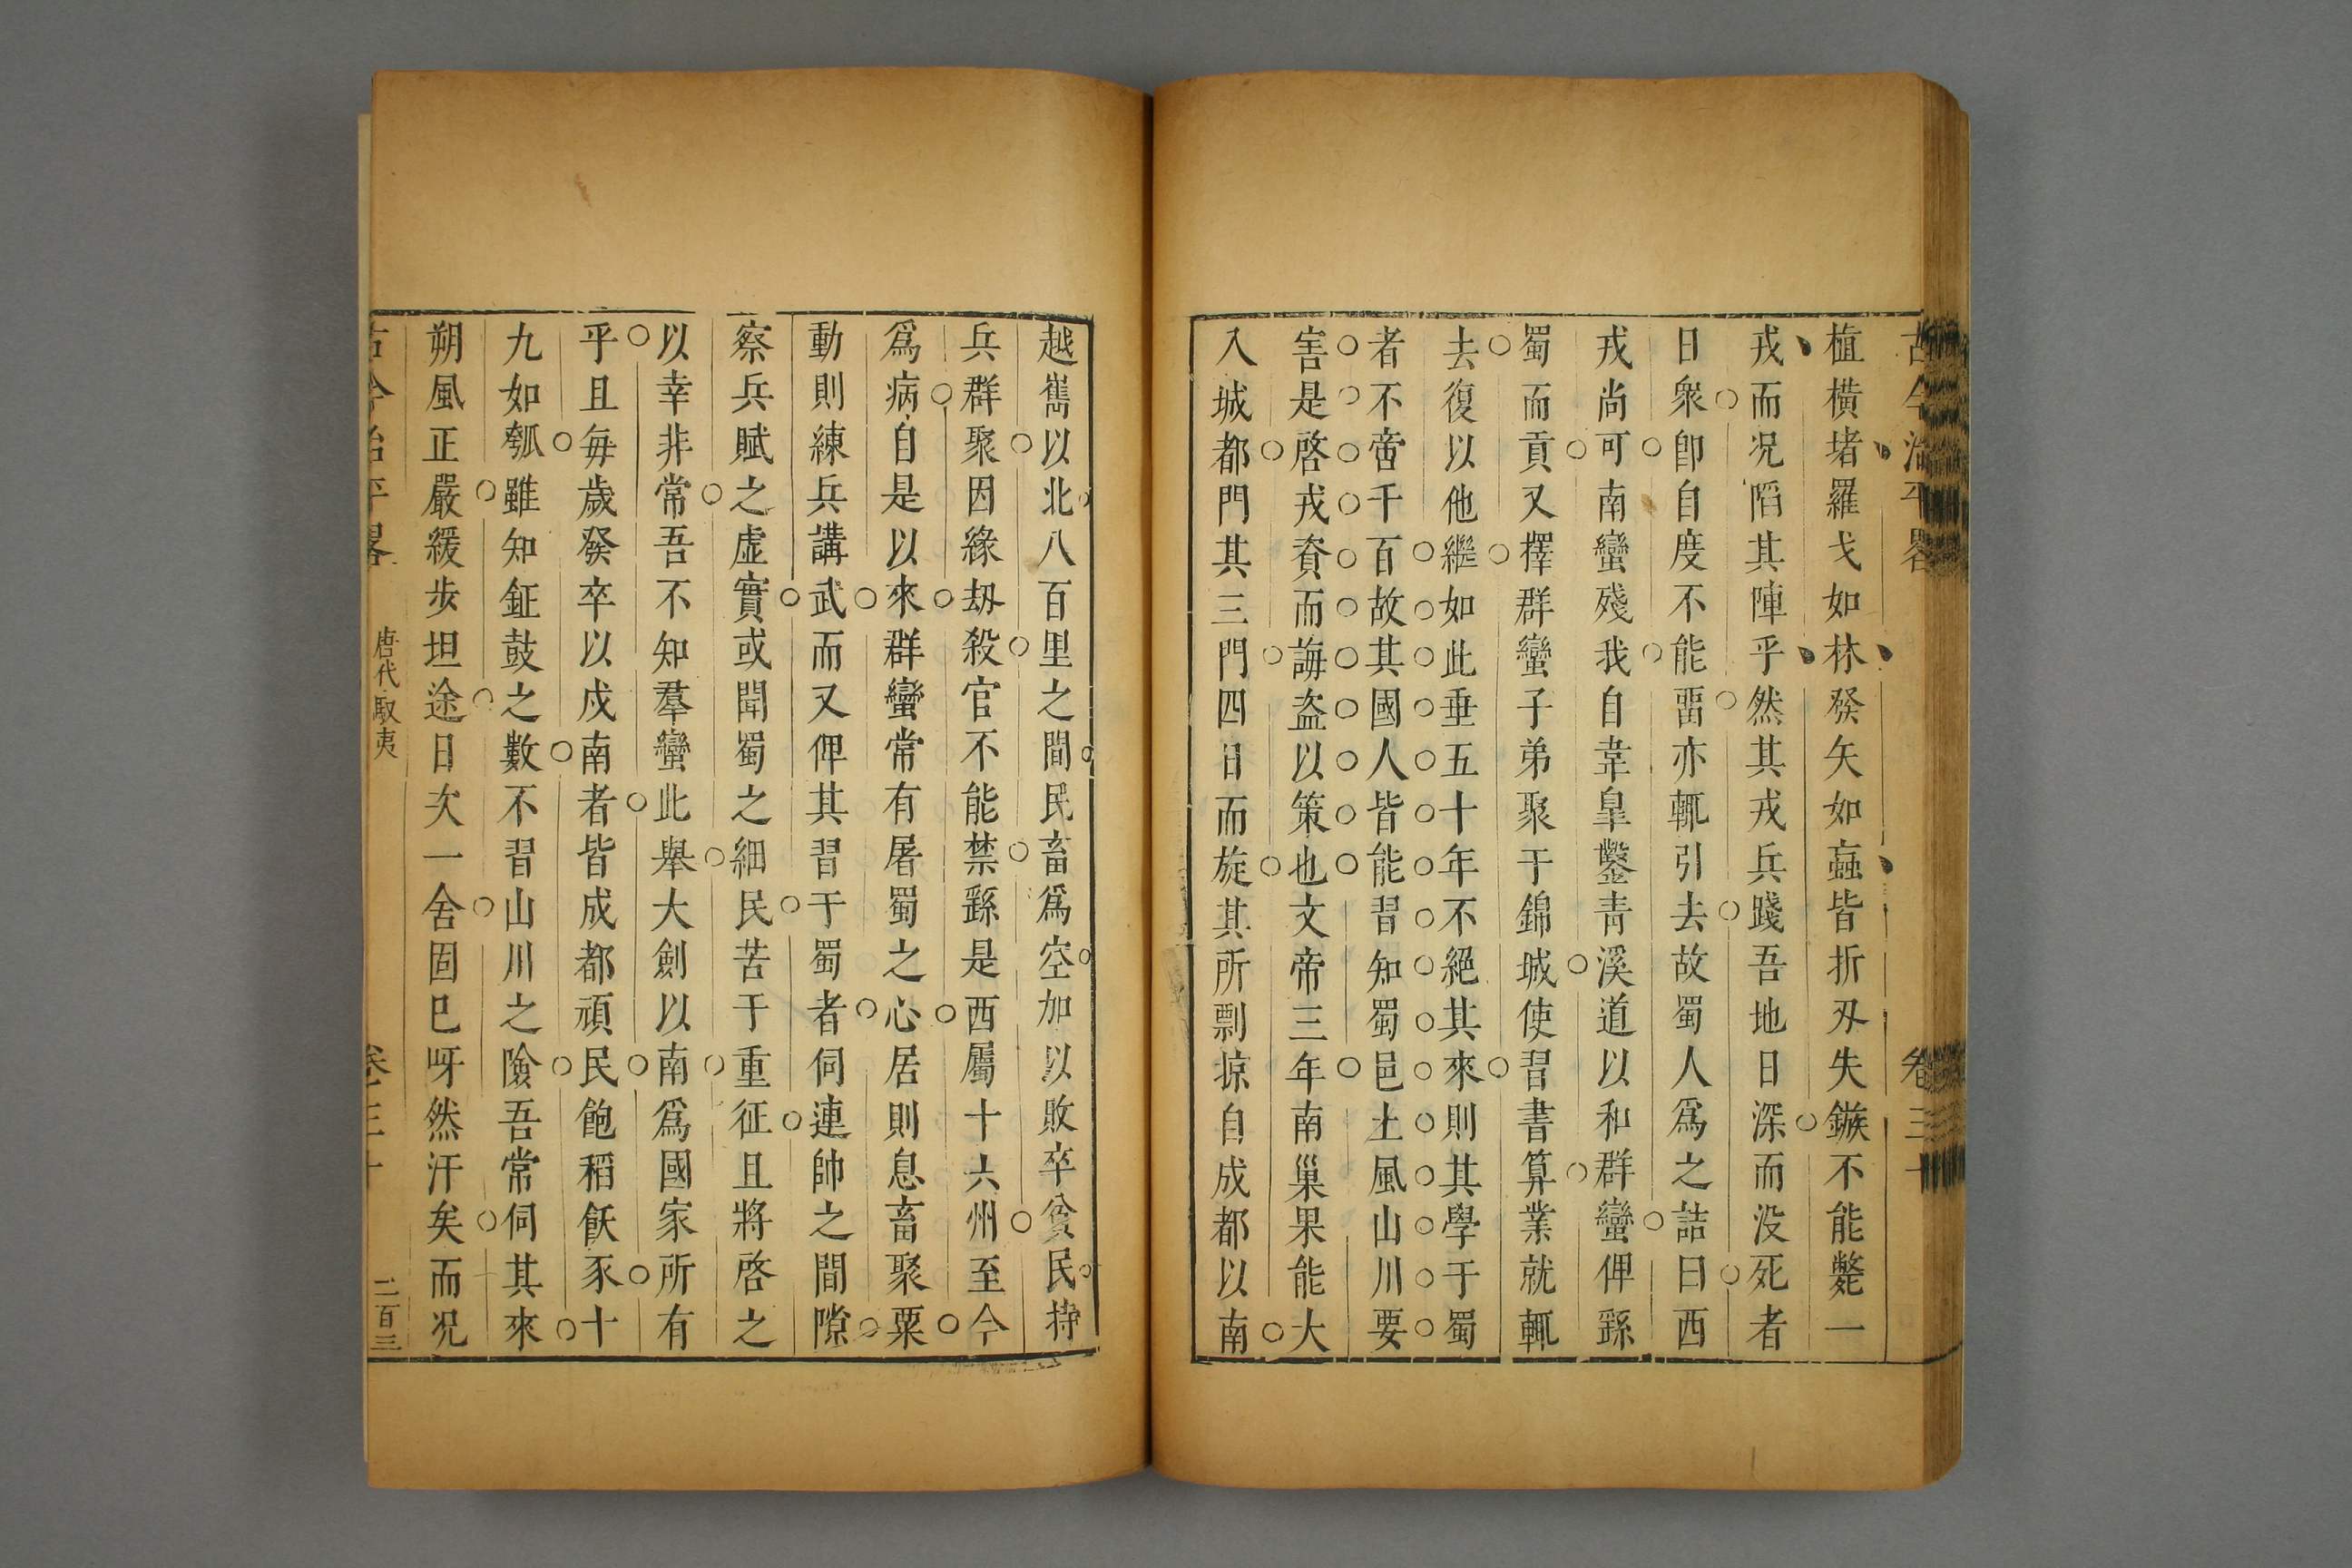 植橫堵羅戈如林發矢如蝱皆折刃失鏃不能斃一
戎而况陷其陣乎然其戎兵踐吾地日深而没死者
日衆卽自度不能畱亦輒引去故蜀人爲之詰曰西
戎尚可南蠻殘我自韋皐鑿靑溪道以和群蠻俾繇
蜀而貢又擇群蠻子弟聚于錦城使習書算業就輒
去復以他繼如此垂五十年不絕其來則其學于蜀
者不啻千百故其國人皆能習知蜀邑土風山川要
害是啓戎資而誨盗以策也文帝三年南巢果能大
入城都門其三門四日而旋其所剽掠自成都以南
越雋以北八百里之間民畜爲空加以敗卒貧民持
兵群聚因緣刼殺官不能禁繇是西屬十六州至今
爲病自是以來群蠻常有屠蜀之心居則息畜聚粟
動則練兵講武而又俾其習于蜀者伺連帥之間隙
察兵賦之虛實或聞蜀之細民苦于重征且將啓之
以幸非常吾不知羣蠻此舉大劍以南爲國家所有
乎且每歲發卒以戍南者皆成都頑民飽稻飫豕十
九如瓠雖知鉦鼓之數不習山川之險吾常伺其來
朔風正嚴緩步坦途日次一舍固巳呀然汗矣而况
古今治平畧 唐代馭夷 卷三十 二百三